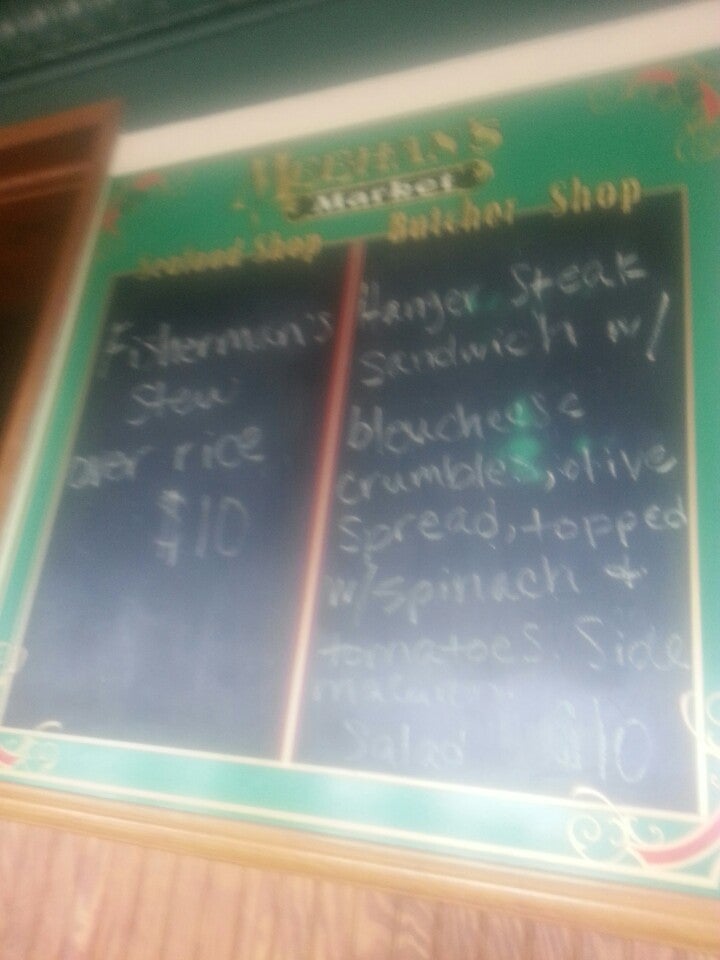 Market
Seafood Shop
Butcher Shop
Fisherman's
Stew
over rice
$10
Hanger Steak
sandwich w/
bleucheese
crumbles, olive
Spread, topped
w/spinach &
tomatoes. Side
Salad $10